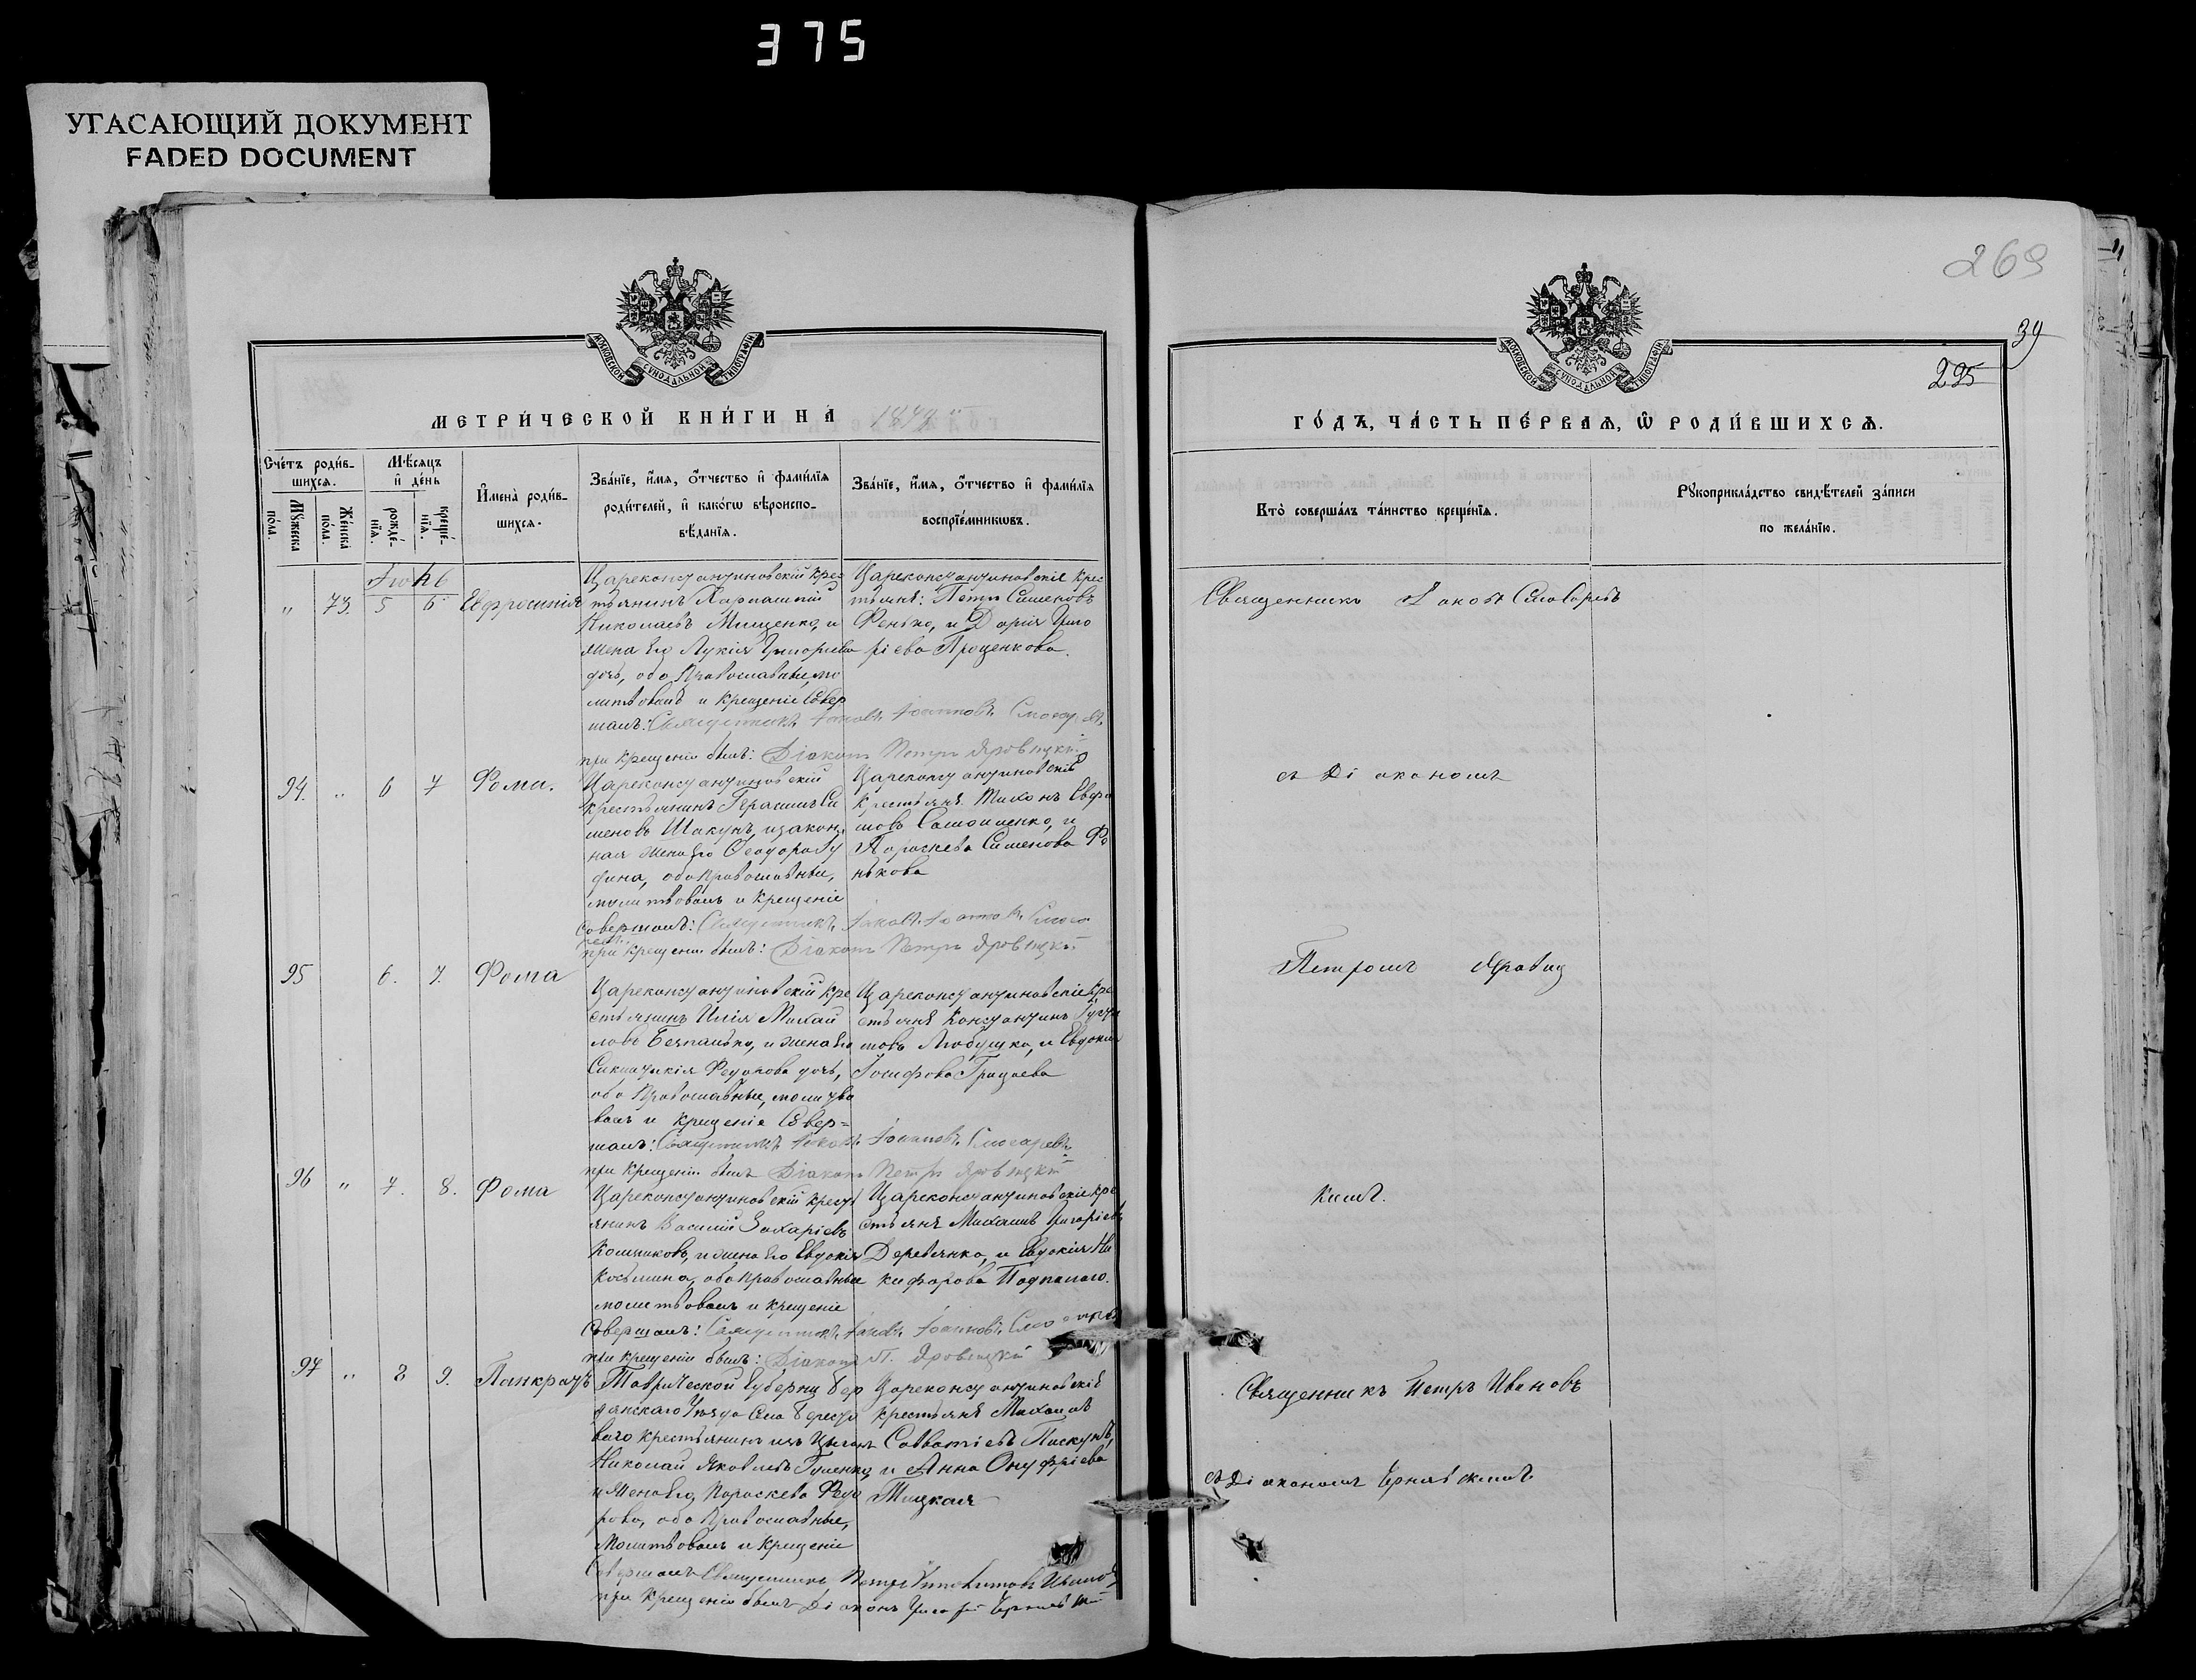 375
УГАСАЮЩИЙ ДОКУМЕНТ
FADED DOCUMENT
269
39
225
МОСКОВСКОЙ СѴНОДАЛЬНОЙ ТИПОГРАФІИ
МОСКОВСКОЙ СѴНОДАЛЬНОЙ ТИПОГРАФІИ
МЕТРИ́ЧЕСКОЙ КНИ́ГИ НА
ГО́ДЪ, ЧА́СТЬ ПЕ́РВАѦ, Ѡ҆ РОДИ́ВШИХСѦ.
Сче́тъ роди́в-
шихсѧ.
Мꙋ́жеска по́ла.
Же́нска по́ла.
Мѣ́сѧцъ
и҆ де́нь
рожде́-
нїѧ.
креще́-
нїѧ.
И҆мена̀ роди́в-
шихсѧ.
Зва́нїе, и҆́мѧ, ѻ҆́тчество и҆ фамилїѧ
роди́телей, и҆ како́гѡ вѣроиспо-
вѣ́данїѧ.
Зва́нїе, и҆́мѧ, ѻ҆́тчество и҆ фамилїѧ
воспрїе́мникѡвъ.
Кто̀ соверша́лъ та́инство креще́нїѧ.
Рꙋкоприкла́дство свидѣ́телей за́писи
по жела́нїю.
" 73. 5 6 Евфросинія
Цареконстантиновскій крес
тьянинъ
Николаевъ Мищенко, и
жена его Лукія Григорьева
дочь, оба Православные, мо
литвовалъ и крещеніе совер
шалъ: Священникъ Іаковъ Іоанновъ
при крещеніи былъ: Діаконъ Петръ Яровицкій
Цареконстантиновскіе крес
тьяне: Петръ Сименовъ
Фенько, и Дарія Григо
ріева Проценкова.
Священникъ Іаковъ
94. " 6 7 Фома.
Цареконстантиновскій
крестьянинъ Герасимъ Си
меновъ Шакунъ, и закон
ная жена его Феодора
оба православные,
молитвовалъ и крещеніе
совершалъ: Священникъ Іаковъ Іоанновъ
при крещеніи былъ: Діаконъ Петръ Яровицкій
Цареконстантиновскіе
крестьяне Тихонъ
Самойленко, и
Параскева Сименова Фе
нькова
съ Діакономъ
95 6. 7. Фома
Цареконстантиновскій кре
стьянинъ Илія Михай
ловъ и жена его
Федорова дочь,
оба Православные, молитво
валъ и крещеніе совер=
шалъ: Священникъ Іаковъ Іоанновъ
при крещеніи былъ Діаконъ Петръ Яровицкій
Цареконстантиновскіе кре
стьяне Константинъ
Любушко, и Евдокія
Іосифова Грицаева
Петромъ Яровиц
96 " 7. 8. Фома
Цареконстантиновскій крест
янинъ Василій Захаріевъ
и жена его Евдокія
Косьмина, оба православные
молитвовалъ и крещеніе
совершалъ: Священникъ Іаковъ Іоанновъ
при крещеніи былъ: Діаконъ П. Яровицкій
Цареконстантиновскіе кре
стьяне Михаилъ Григоріевъ
Деревянко, и Евдокія Ни
кифорова
кимъ.
97 " 8 9. Панкратъ
Таврической Губерніи Бер
дянскаго Уезда Села
крестьянинъ изъ Цыганъ
Николай Яковлевъ
и жена его Параскева Федо
рова, оба Православные,
Молитвовалъ и крещеніе
Совершалъ Священникъ Петръ
при крещеніи былъ Діаконъ
Цареконстантиновскіе
крестьяне Михаилъ
Савватіевъ Пискунъ,
и Анна Онуфріева
Тицкая
Священникъ Петръ Ивановъ
съ Діакономъ Чернявскимъ